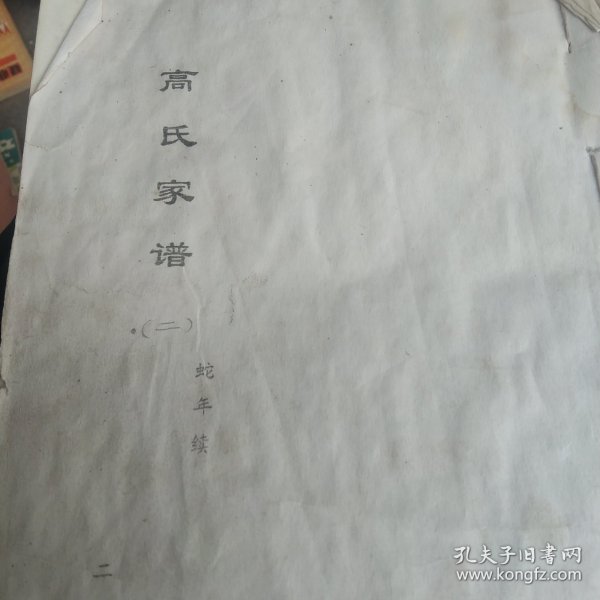 高氏家谱
（二）
蛇年续
二
孔夫子旧书网
www.kongfz.com